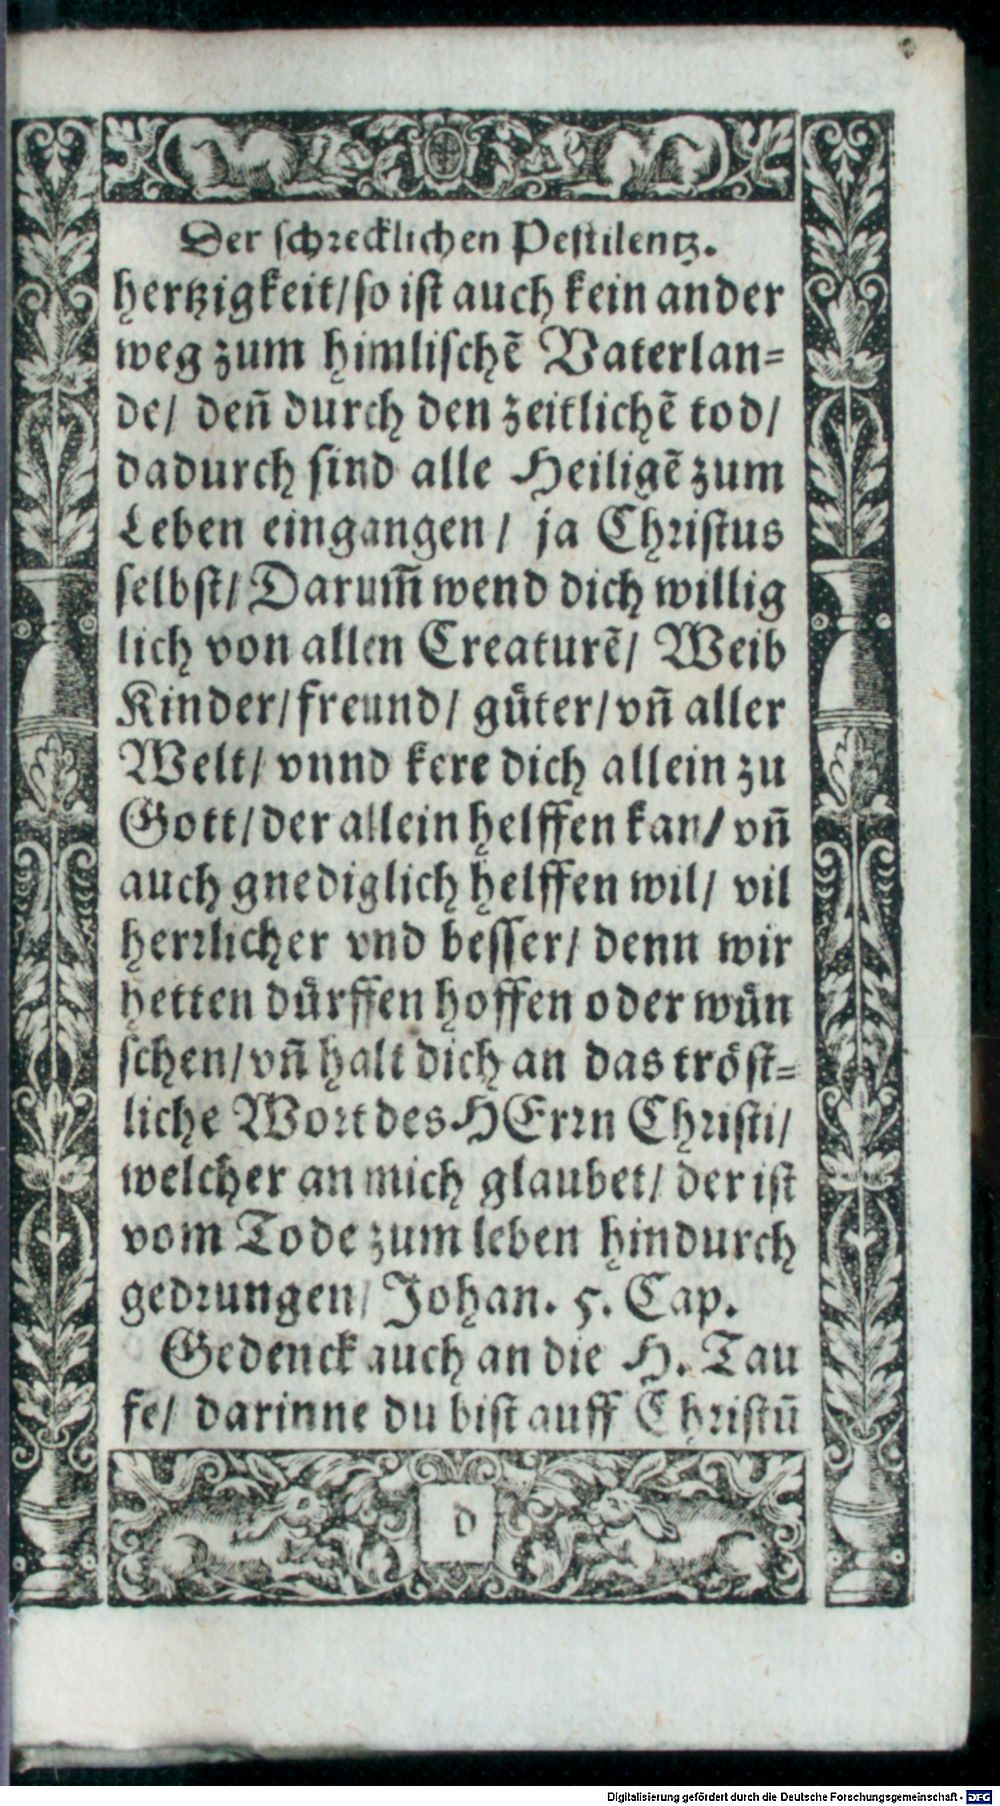 Der schrecklichen Pestilentz.
hertzigkeit/ so ist auch kein ander
weg zum himlischẽ Vaterlan=
de/ deñ durch den zeitlichẽ tod/
dadurch sind alle Heiligẽ zum
Leben eingangen/ ja Christus
selbst/ Darum̃ wend dich willig
lich von allen Creaturẽ/ Weib
Kinder/ freund/ gůter/ vñ aller
Welt/ vnnd kere dich allein zu
Gott/ der allein helffen kan/ vñ
auch gnediglich helffen wil/ vil
herrlicher vnd besser/ denn wir
hetten důrffen hoffen oder wůn
schen/ vñ halt dich an das tröst=
liche Wort des HErrn Christi/
welcher an mich glaubet/ der ist
vom Tode zum leben hindurch
gedrungen/ Johan. 5. Cap.
Gedenck auch an die H. Tau
fe/ darinne du bist auff Christũ
d
Digitalisierung gefördert durch die Deutsche Forschungsgemeinschaft - DFG